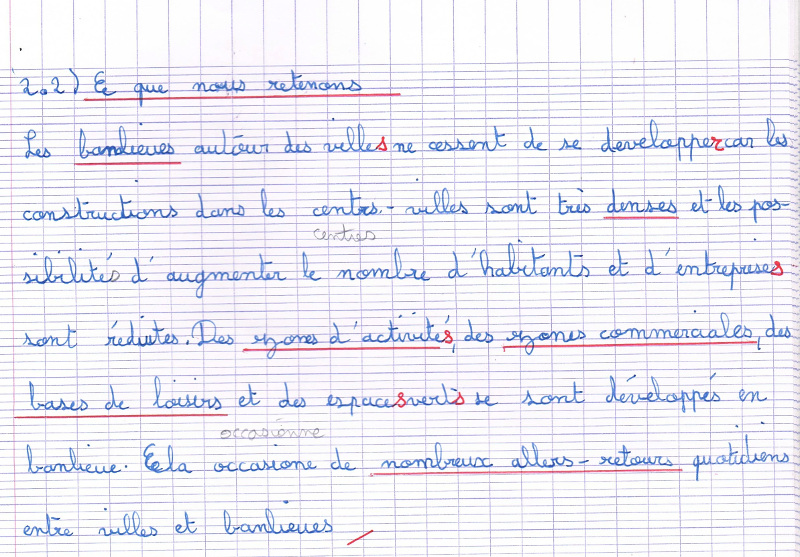 2.2) Ce que nous retenons
Les banlieues autour des villes ne cessent de se developper car les
constructions dans les centrs-villes sont très denses et les pos-
centres
sibilités d'augmenter le nombre d'habitants et d'entreprises
sont réduites. Des zones d'activités, des zones commerciales, des
bases de loisirs et des espaces verts se sont développés en
occasionne
banlieue. Cela occasione de nombreux allers-retours quotidiens
entre villes et banlieues